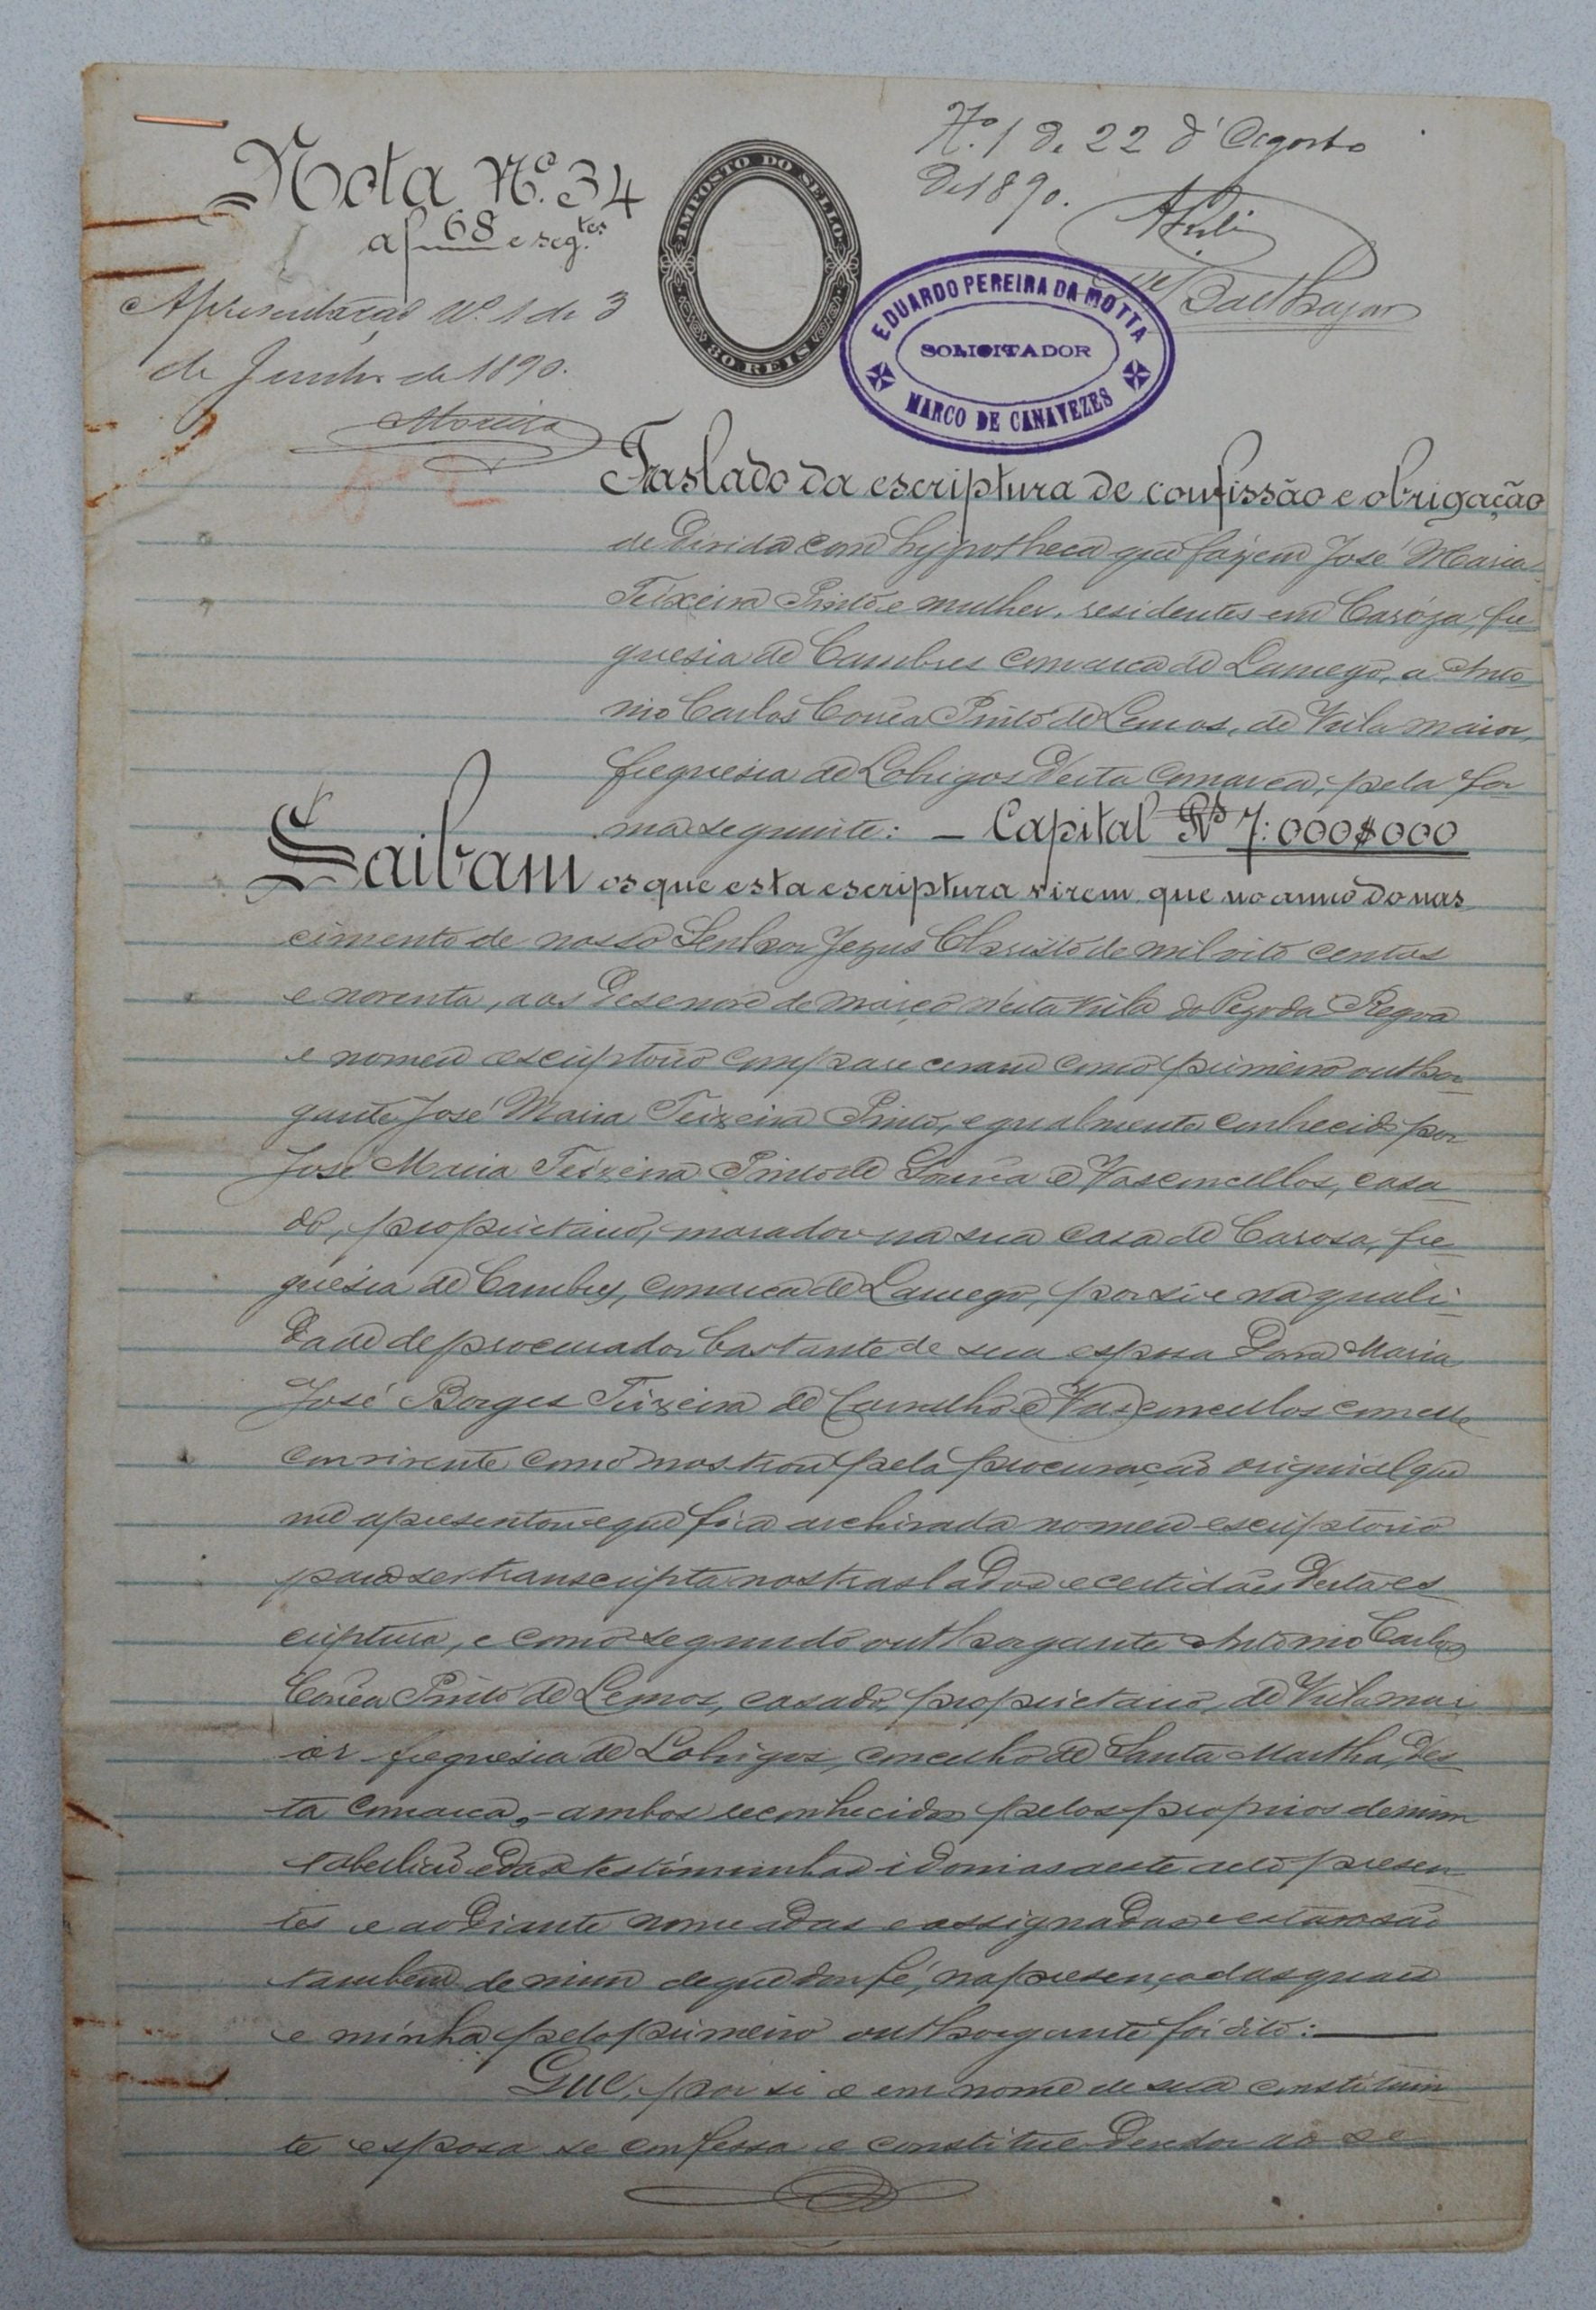 Nota Nº. 34
a f 68 e seg.tes
Apresentação Nº. 1 de 3
de Junho de 1890.
Moreira
IMPOSTO DO SELLO
80 REIS
Nº. 1 D. 22 d'Agosto
De 1890.
EDUARDO PEREIRA DA MOTTA
SOLICITADOR
MARCO DE CANAVEZES
Traslado da escriptura de confissão e obrigação
de divida com hypotheca que fazem José Maria
Teixeira Pinto e mulher, residentes em Caróza, fre
guesia de Cambres comarca de Lamego, a Anto
nio Carlos Corrêa Pinto de Lemos, de Villa maior,
freguesia de Lobrigos desta comarca, pela for
ma seguinte: — Capital Rs 7:000$000
Saibam os que esta escriptura virem que no anno do nas
cimento de nosso Senhor Jezus Christo de mil oito centos
e noventa, aos desenove de março n'esta villa do Pezo da Regoa
e no meu escriptorio compareceram como primeiro outhor
gante José Maria Teixeira Pinto, egualmente conhecido por
José Maria Teixeira Pinto de Souza e Vasconcellos, casa
do, proprietario, morador na sua casa de Carosa, fre
guesia de Cambres, comarca de Lamego, por si e na quali
dade de procurador bastante de sua esposa Dona Maria
José Borges Teixeira de Carvalho e Vasconcellos com elle
convivente como mostrou pela procuração original que
me apresentou e que fica archivada no meu escriptorio
para ser transcripta nos traslados e certidões desta es
criptura, e como segundo outhorgante Antonio Carlos
Corrêa Pinto de Lemos, casado, proprietario, de Villa mai
or freguesia de Lobrigos, concelho de Santa Martha, des
ta comarca, - ambos reconhecidos pelos proprios de mim
tabellião e das testimunhas idonias a este acto presen
tes e ao diante nomeadas e assignadas e estas o são
tambem de mim de que dou fé, na presença das quaes
e minha pelo primeiro outhorgante foi dito:
Que, por si e em nome de sua constituin
te esposa se confessa e constitue devedor ao se